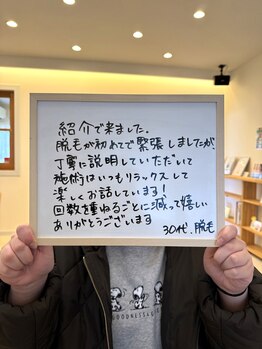 紹介で来ました。
脱毛が初めてで緊張しましたが、
丁寧に説明していただいて
施術はいつもリラックスして
楽しくお話しています!
回数を重ねるごとに減って嬉しい
ありがとうございます
30代、脱毛
GOODNESS